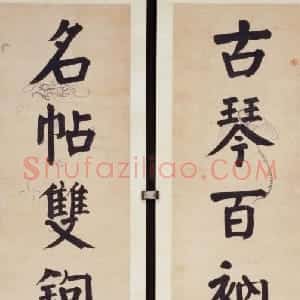 古琴百衲
名帖雙鉤
Shufaziliao.COM